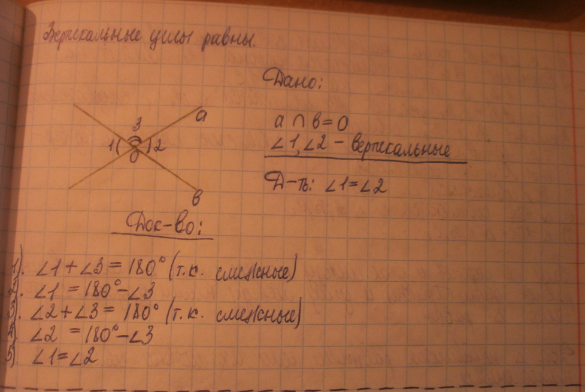 Вертикальные углы равны.
Дано:
a ∩ b = 0
∠1, ∠2 - вертикальные
Д-ть: ∠1 = ∠2
3
a
1
2
0
b
Док-во:
∠1 + ∠3 = 180° (т.к. смежные)
∠1 = 180° - ∠3
∠2 + ∠3 = 180° (т.к. смежные)
∠2 = 180° - ∠3
∠1 = ∠2